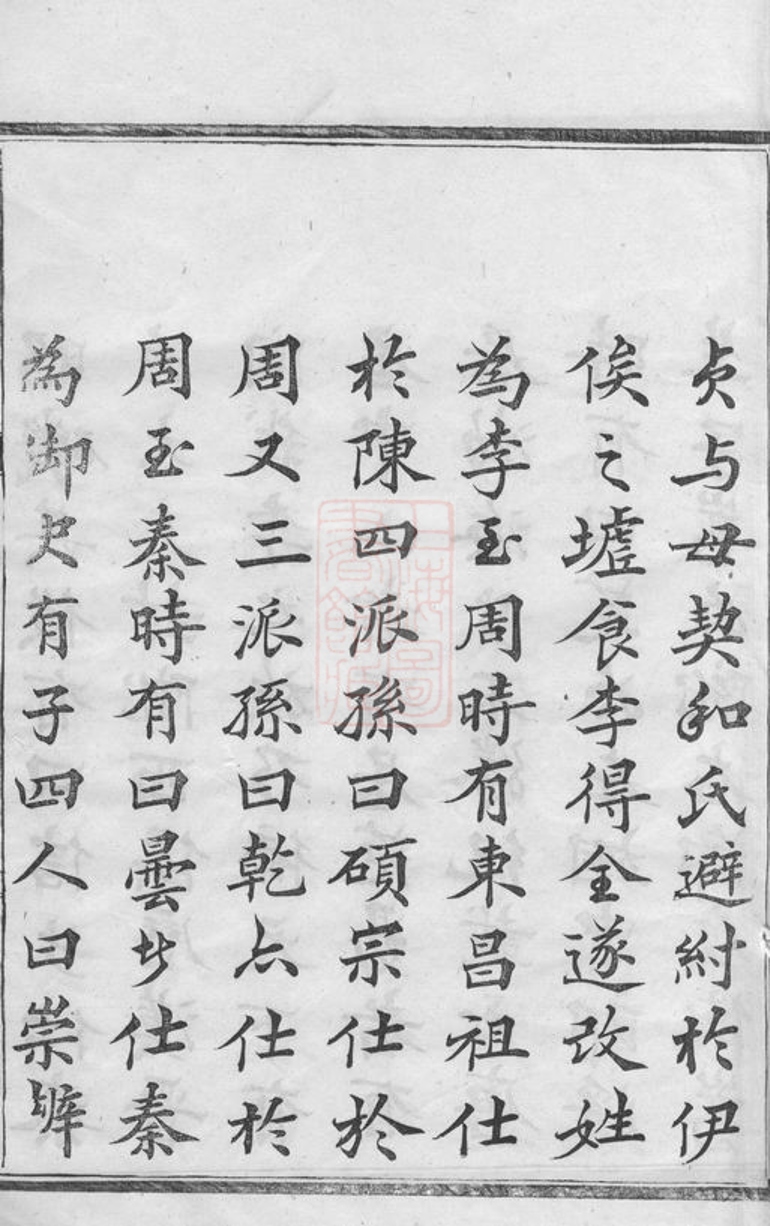 贞与母契和氏避紂於伊
侯之墟食李得全遂改姓
為李至周時有東昌祖仕
於陳四派孫曰碩宗仕於
周又三派孫曰乾亦仕於
周至秦時有曰曇者仕秦
為御史有子四人曰崇辟
上海圖書館藏